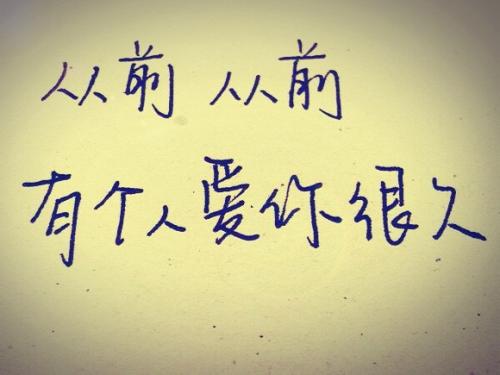 从前 从前
有个人爱你很久